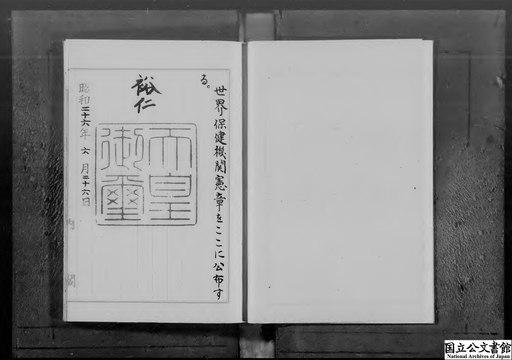 世界保健機関憲章をここに公布す
る。
裕仁
天皇
御璽
昭和二十六年六月二十六日
内閣
国立公文書館
National Archives of Japan